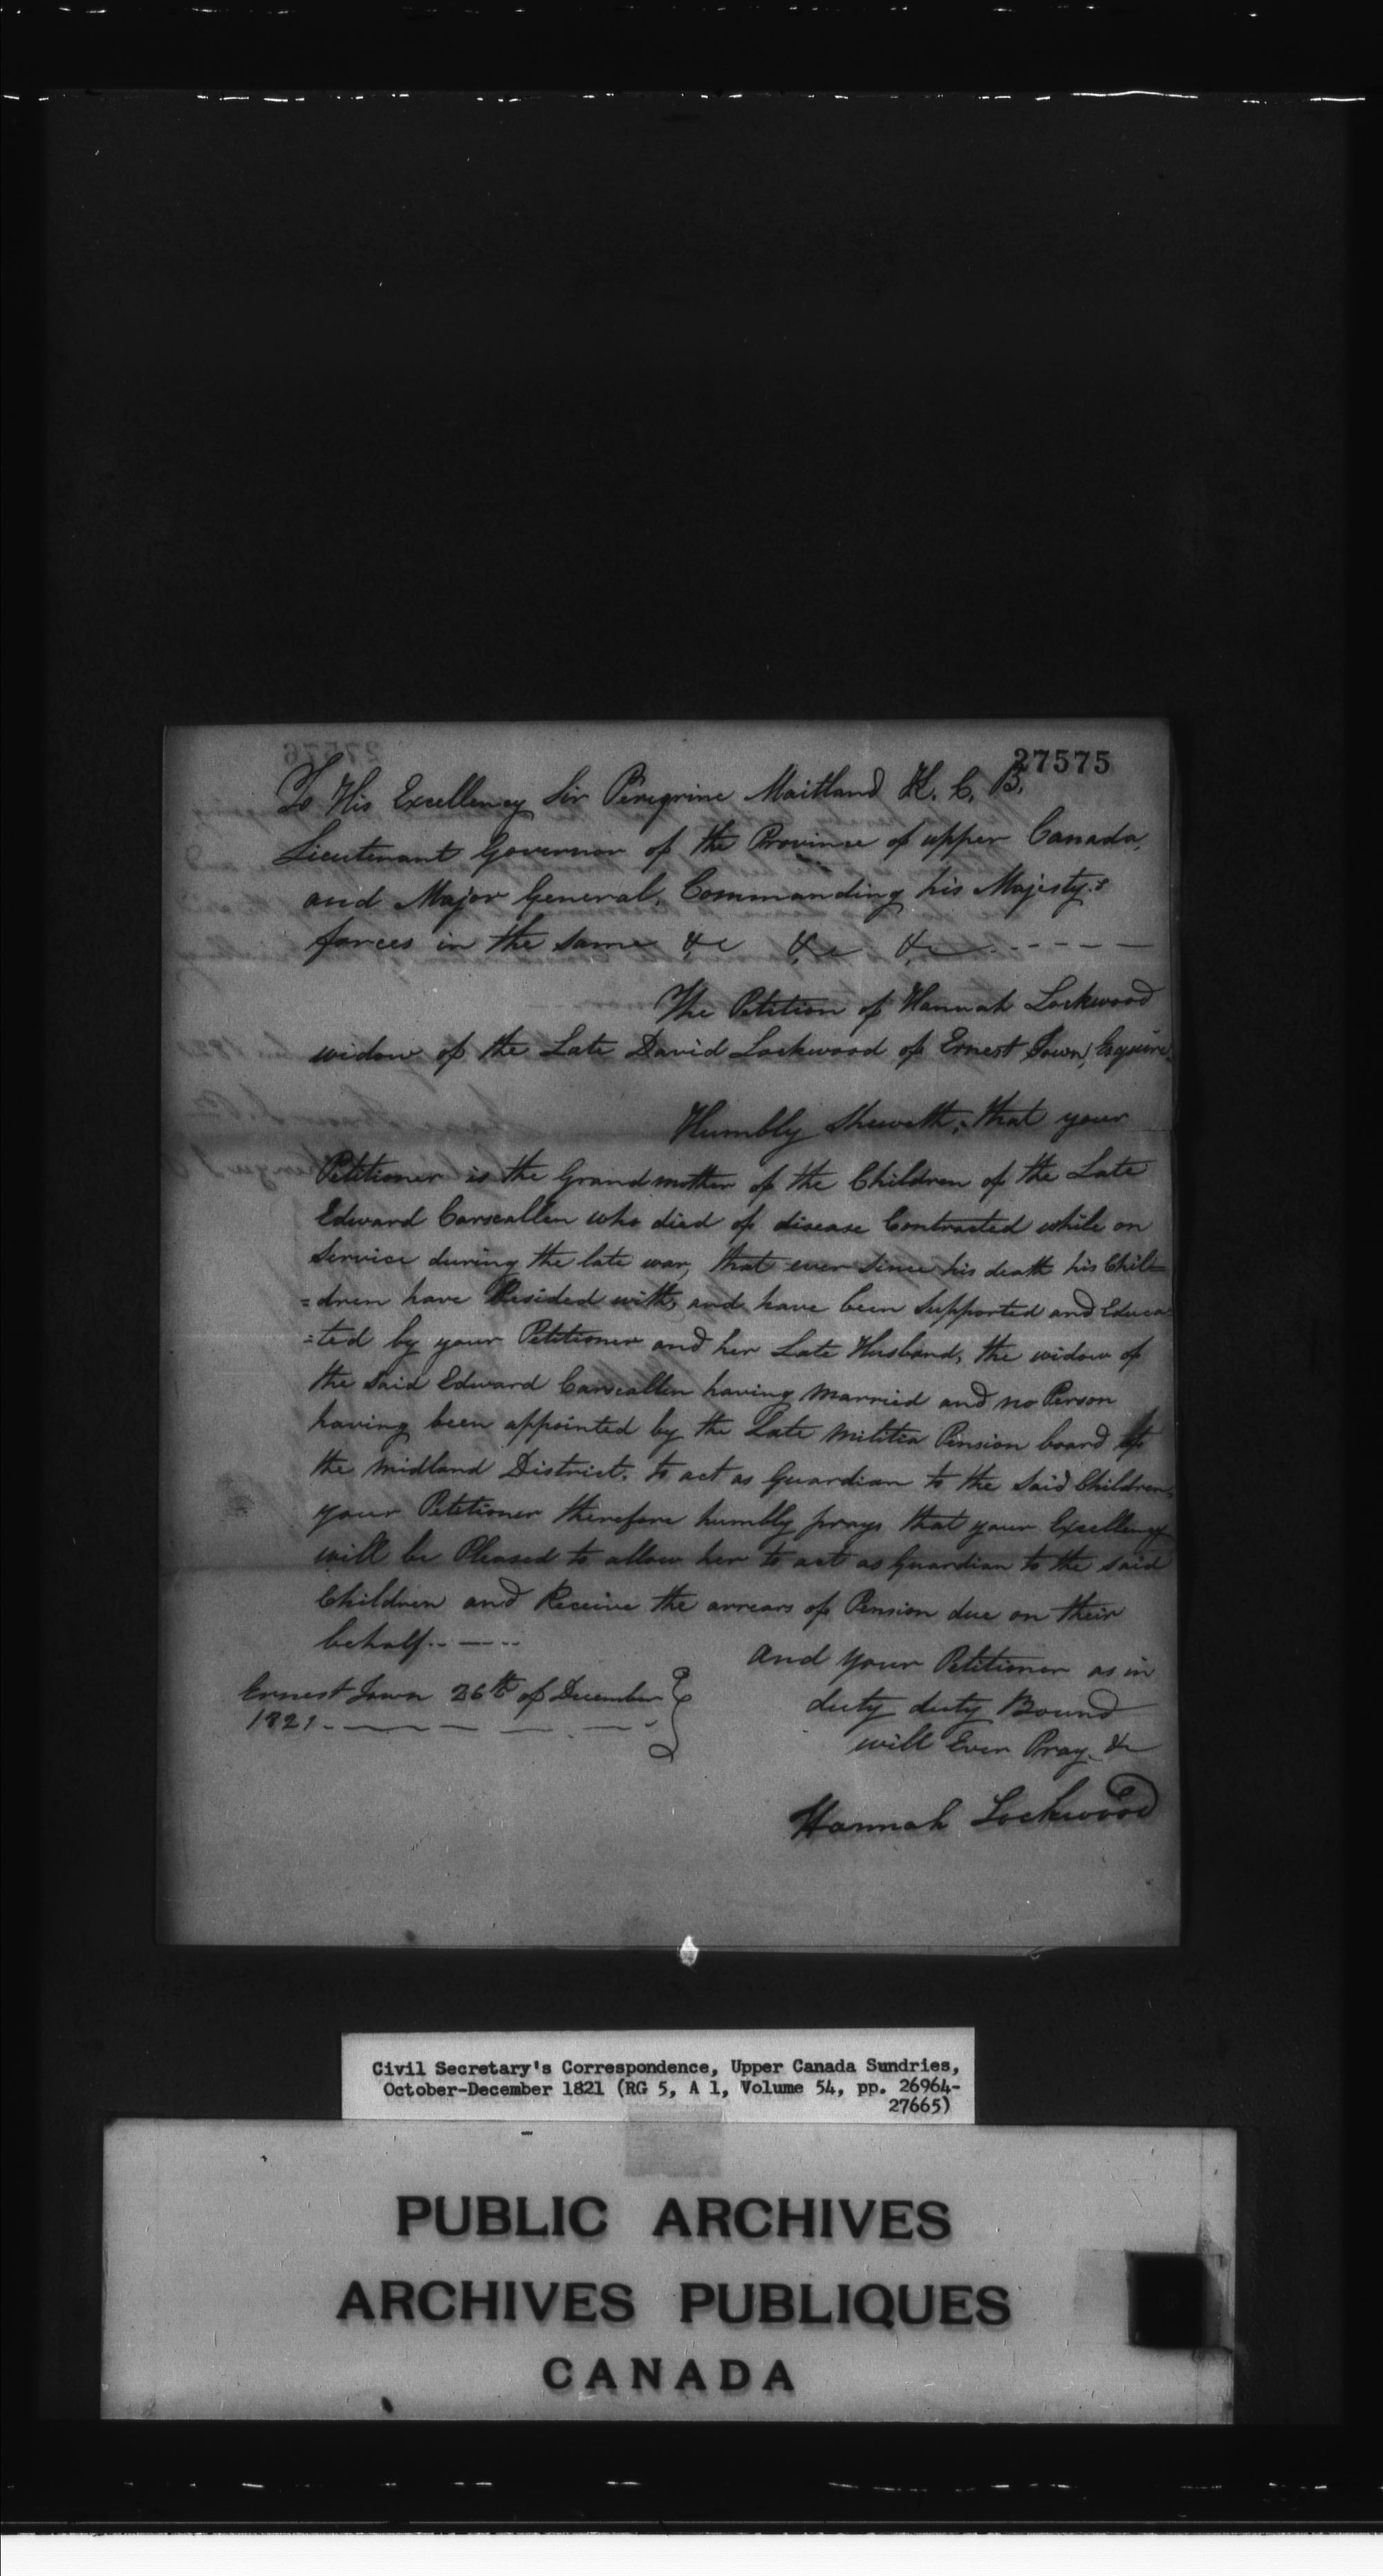 27575
To His Excellency Sir Peregrine Maitland K. C. B.
Lieutenant Governor of the Province of upper Canada,
and Major General, Commanding his Majesty's
forces in the same &c &c &c - - - - -
The Petition of Hannah Lockwood
widow of the Late David Lockwood of Ernest Town, Esquire.
Humbly Sheweth, that your
Petitioner is the Grandmother of the Children of the Late
Edward Carscallen who died of disease Contracted while on
Service during the late war, that ever Since his death his Chil=
=dren have Resided with, and have been Supported and Educa=
=ted by your Petitioner and her Late Husband, the widow of
the Said Edward Carscallen having married and no Person
having been appointed by the Late Militia Pension board of
the Midland District, to act as Guardian to the Said Children,
your Petitioner therefore humbly prays that your Excellency
will be Pleased to allow her to act as Guardian to the said
Children and Receive the arrears of Pension due on their
behalf.. — ..
and your Petitioner as in
duty duty Bound
will Ever Pray &c
Ernest Town 26th of December
1821
Hannah Lockwood
Civil Secretary's Correspondence, Upper Canada Sundries,
October-December 1821 (RG 5, A 1, Volume 54, pp. 26964-
27665)
PUBLIC ARCHIVES
ARCHIVES PUBLIQUES
CANADA